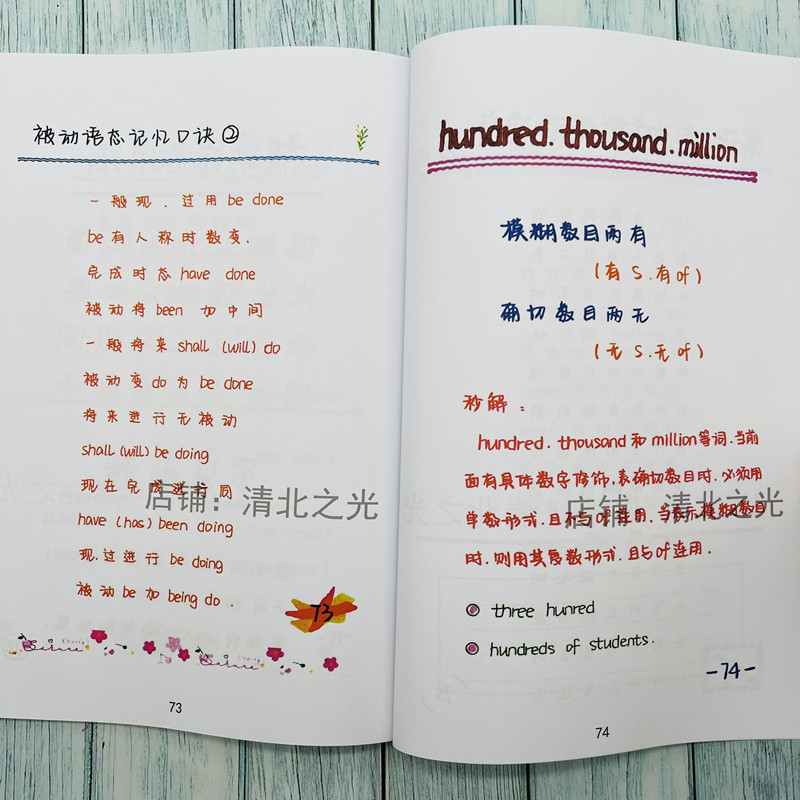 被动语态记忆口诀②
一般现、过用 be done
be 有人称时数变.
完成时态 have done
被动将 been 加中间
一般将来 shall (will) do
被动变 do 为 be done
将来进行无被动
shall (will) be doing
现在完成进行同
have (has) been doing
现.过进行 be doing
被动 be 加 being do .
73
73
店铺：清北之光
hundred. thousand. million
模糊数目两有
(有 S .有 of )
确切数目两无
(无 S .无 of )
秒解：
hundred. thousand 和 million 等词.当前
面有具体数字修饰,表确切数目时.必须用
单数形式.且不与 of 连用.当表示模糊数目
时.则用其复数形式.且与 of 连用.
three hunred
hundreds of students.
-74-
74
店铺：清北之光